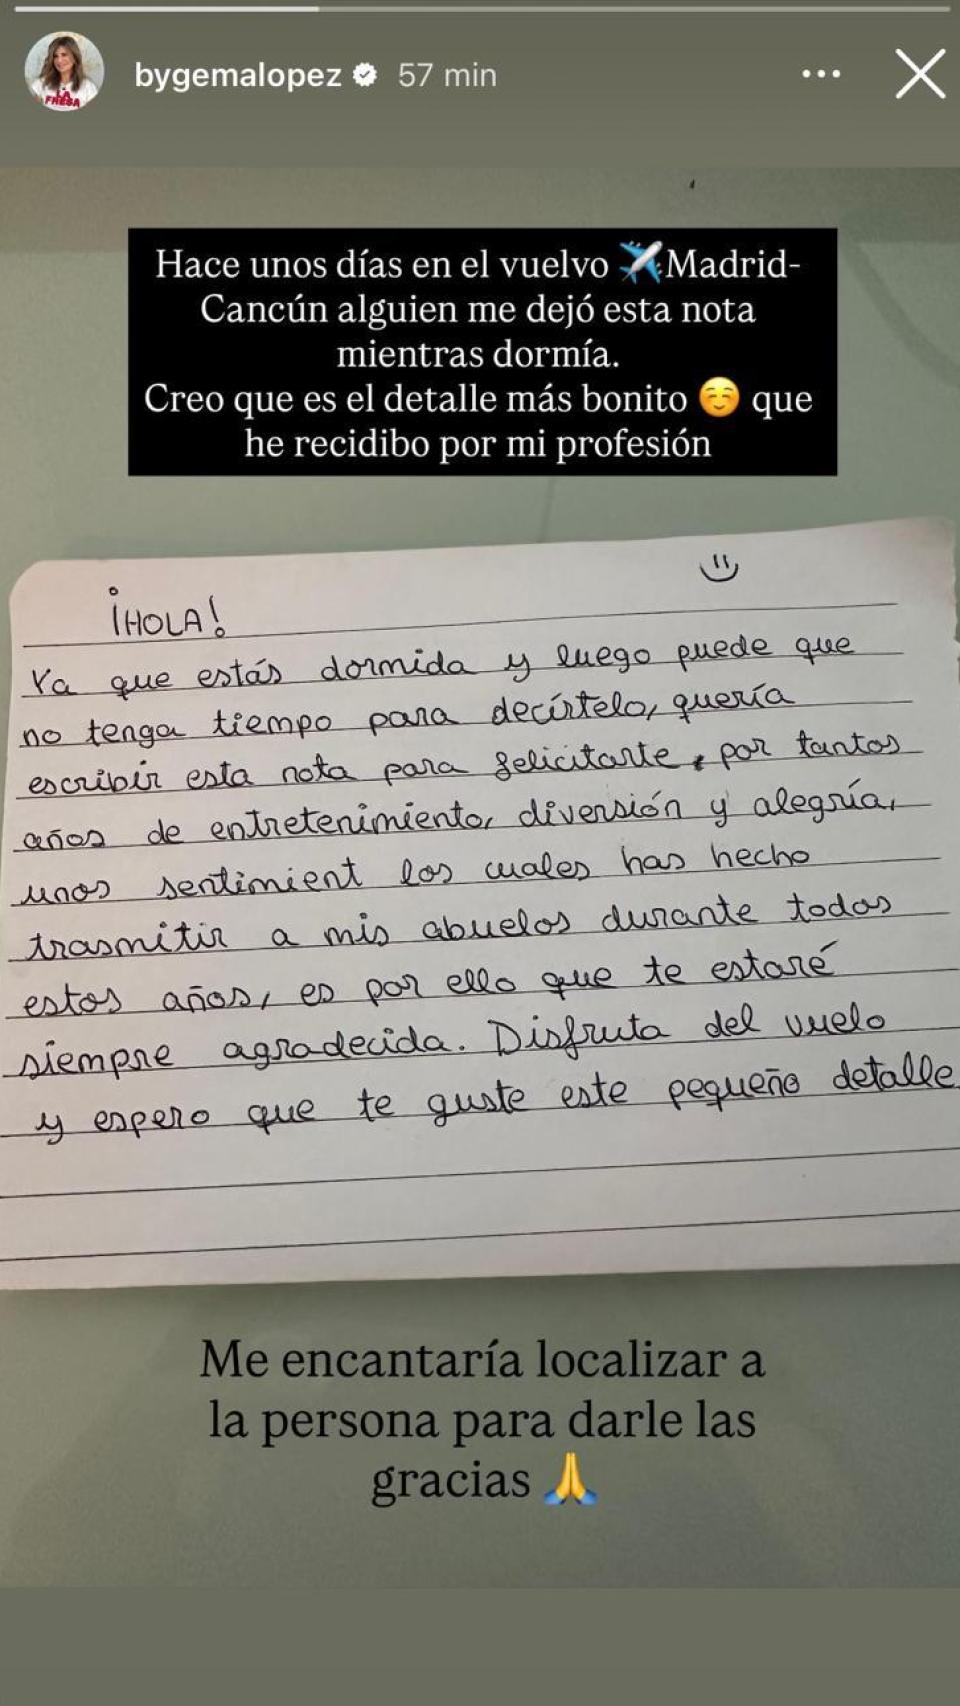 bygemalopez 57 min
LA
FRESA
Hace unos días en el vuelvo ✈️Madrid-
Cancún alguien me dejó esta nota
mientras dormía.
Creo que es el detalle más bonito ☺️ que
he recidibo por mi profesión
¡HOLA!
Ya que estás dormida y luego puede que
no tenga tiempo para decírtelo, quería
escribir esta nota para felicitarte, por tantos
años de entretenimiento, diversión y alegría,
unos sentimient los cuales has hecho
trasmitir a mis abuelos durante todos
estos años, es por ello que te estaré
siempre agradecida. Disfruta del vuelo
y espero que te guste este pequeño detalle
Me encantaría localizar a
la persona para darle las
gracias 🙏